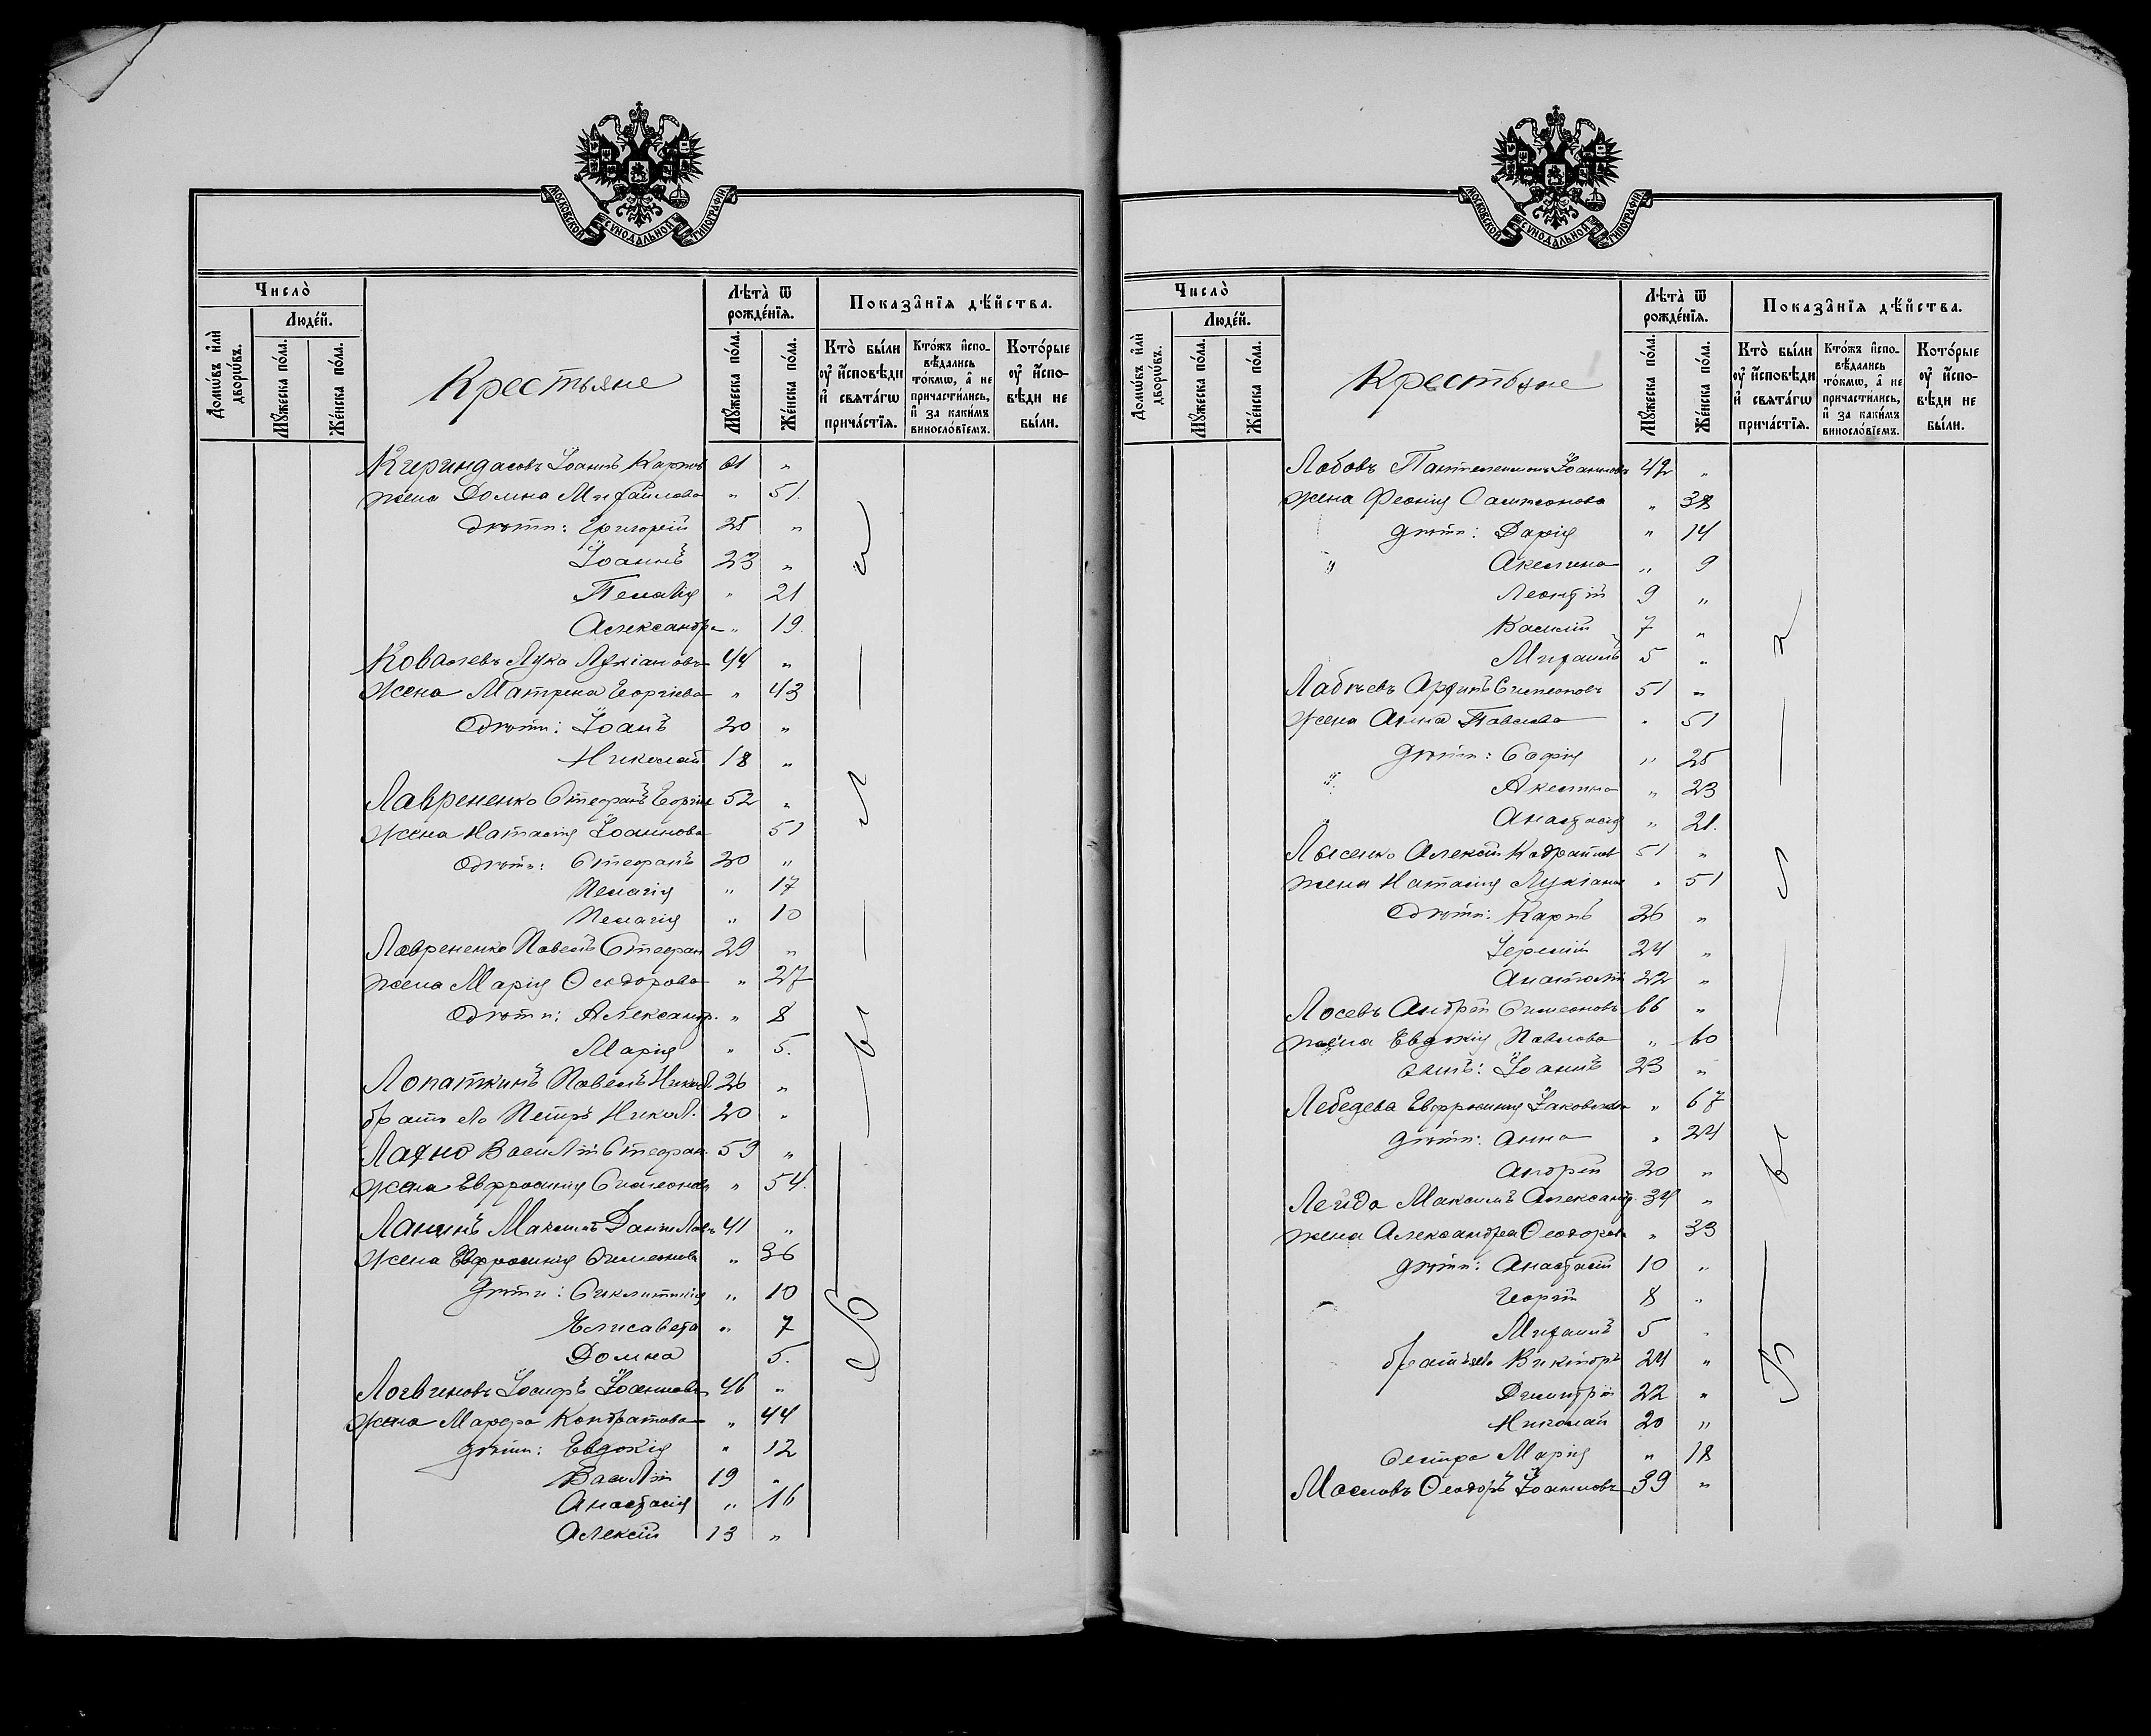 МОСКОВСКОЙ СѴНОДАЛЬНОЙ ТИПОГРАФІИ
Число̀
Люде́й.
Домѡ́въ и҆лѝ дворѡ́въ.
Мꙋ́жеска по́ла.
Же́нска по́ла.
Крестьяне
Лѣта̀ ѿ рожде́нїѧ.
Мꙋ́жеска по́ла.
Же́нска по́ла.
Показа̑нїѧ дѣ́йства.
Кто̀ бы́ли оу҆ и҆сповѣди и҆ свѧта́гѡ прича́стїѧ.
Кто́жъ и҆сповѣ́дались то́кмѡ, а҆ не причасти́лись, и҆ за каки́мъ виносло́вїемъ.
Кото́рые оу҆ и҆сповѣди не бы́ли.
Іоаннъ Карповъ 61 "
жена Домна Михайлова " 51.
дѣти: Григорій 25 "
Іоаннъ 23 "
Пелагія " 21
Александра " 19.
Ковалевъ Лука Лукіановъ 44 "
жена Матрена Георгіева " 43
дѣти: Іоанъ 20 "
Николай 18 "
Лаврененко Стефанъ Георгіев 52 "
жена Наталія Іоаннова 51
дѣти: Стефанъ 20 "
Пелагія " 17
Пелагія " 10
Лаврененко Павелъ Стефан 29 "
жена Марія Ѳеодорова " 27
дѣти: Александр. " 8
Марія " 5.
Лопаткинъ Павелъ Никол. 26 "
братъ его Петръ Никол. 20 "
Лахно Василій Стефан. 59 "
жена Евфросинія Симеонов " 54.
Лапинъ Максимъ Даниловъ 41 "
жена Евфросинія Симеонова " 36
дѣти: Синклитикія " 10
Елисавета " 7
Домна 5.
Логвиновъ Іосифъ Іоанновъ 46 "
жена Марфа Кондратова " 44
дѣти: Евдокія " 12
Василій 19 "
Анастасія " 16
Алексій 13 "
Б ы л и
МОСКОВСКОЙ СѴНОДАЛЬНОЙ ТИПОГРАФІИ
Число̀
Люде́й.
Домѡ́въ и҆лѝ дворѡ́въ.
Мꙋ́жеска по́ла.
Же́нска по́ла.
Крестьяне
Лѣта̀ ѿ рожде́нїѧ.
Мꙋ́жеска по́ла.
Же́нска по́ла.
Показа̑нїѧ дѣ́йства.
Кто̀ бы́ли оу҆ и҆сповѣди и҆ свѧта́гѡ прича́стїѧ.
Кто́жъ и҆сповѣ́дались то́кмѡ, а҆ не причасти́лись, и҆ за каки́мъ виносло́вїемъ.
Кото́рые оу҆ и҆сповѣди не бы́ли.
Лобовъ Пантелеимонъ Іоанновъ 42 "
жена Феонія Сампсонова " 38
дѣти: Дарія " 14
" Акелина " 9
Леонтій 9 "
Василій 7 "
Михаилъ 5 "
Симеоновъ 51 "
жена Анна Павлова " 51
дѣти: Софія " 25
" Акелина " 23
" Анастасія " 21.
Лысенко Алексій Кодратов 51 "
жена Наталія Лукіанов " 51
дѣти: Карпъ 26 "
Іеремій 24 "
Анатолій 22 "
Лосевъ Андрей Симеоновъ 66 "
жена Евдокія Павлова " 60
сынъ: Іоаннъ 23 "
Лебедева Евфросинія Іаковлева " 67
дѣти: Анна " 24
Андрей 20 "
Лейда Максимъ Александр. 34 "
жена Александра Ѳеодоров " 33
дѣти: Анастасій 10 "
Георгій 8 "
Михаилъ 5 "
братья его Викторъ 24 "
Димитрій 22 "
Николай 20 "
Сестра Марія " 18
Масловъ Ѳеодоръ Іоанновъ 39 "
Б ы л и